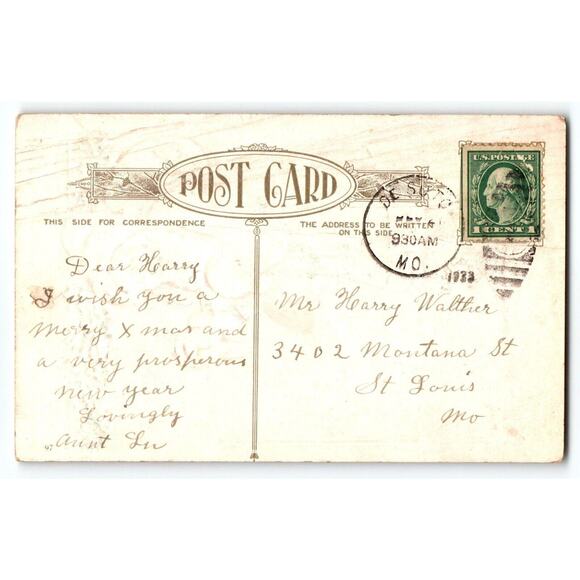 POST CARD
THIS SIDE FOR CORRESPONDENCE
THE ADDRESS TO BE WRITTEN
ON THIS SIDE
U.S. POSTAGE
1 CENT 1
DE SOTO
930AM
MO.
1933
Dear Harry
I wish you a
Merry X mas and
a very prosperous
new year
Lovingly
Aunt Lu
Mr Harry Walther
3402 Montana St
St Louis
Mo